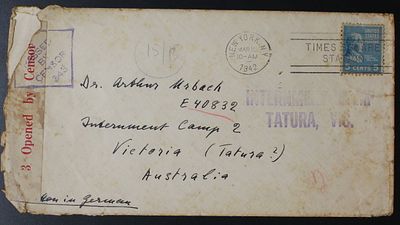 3 Opened by Censor
PASSED
BY
CENSOR
343
NEW YORK, N.Y.
MAR
10-AM
1942
TIMES SQUARE
STA.
5 CENTS 5
Dr. Arthur Urbach
E 40832
INTERNMENT CAMP
TATURA, VIC.
Internment Camp 2
Victoria (Tatura?)
Australia
in German